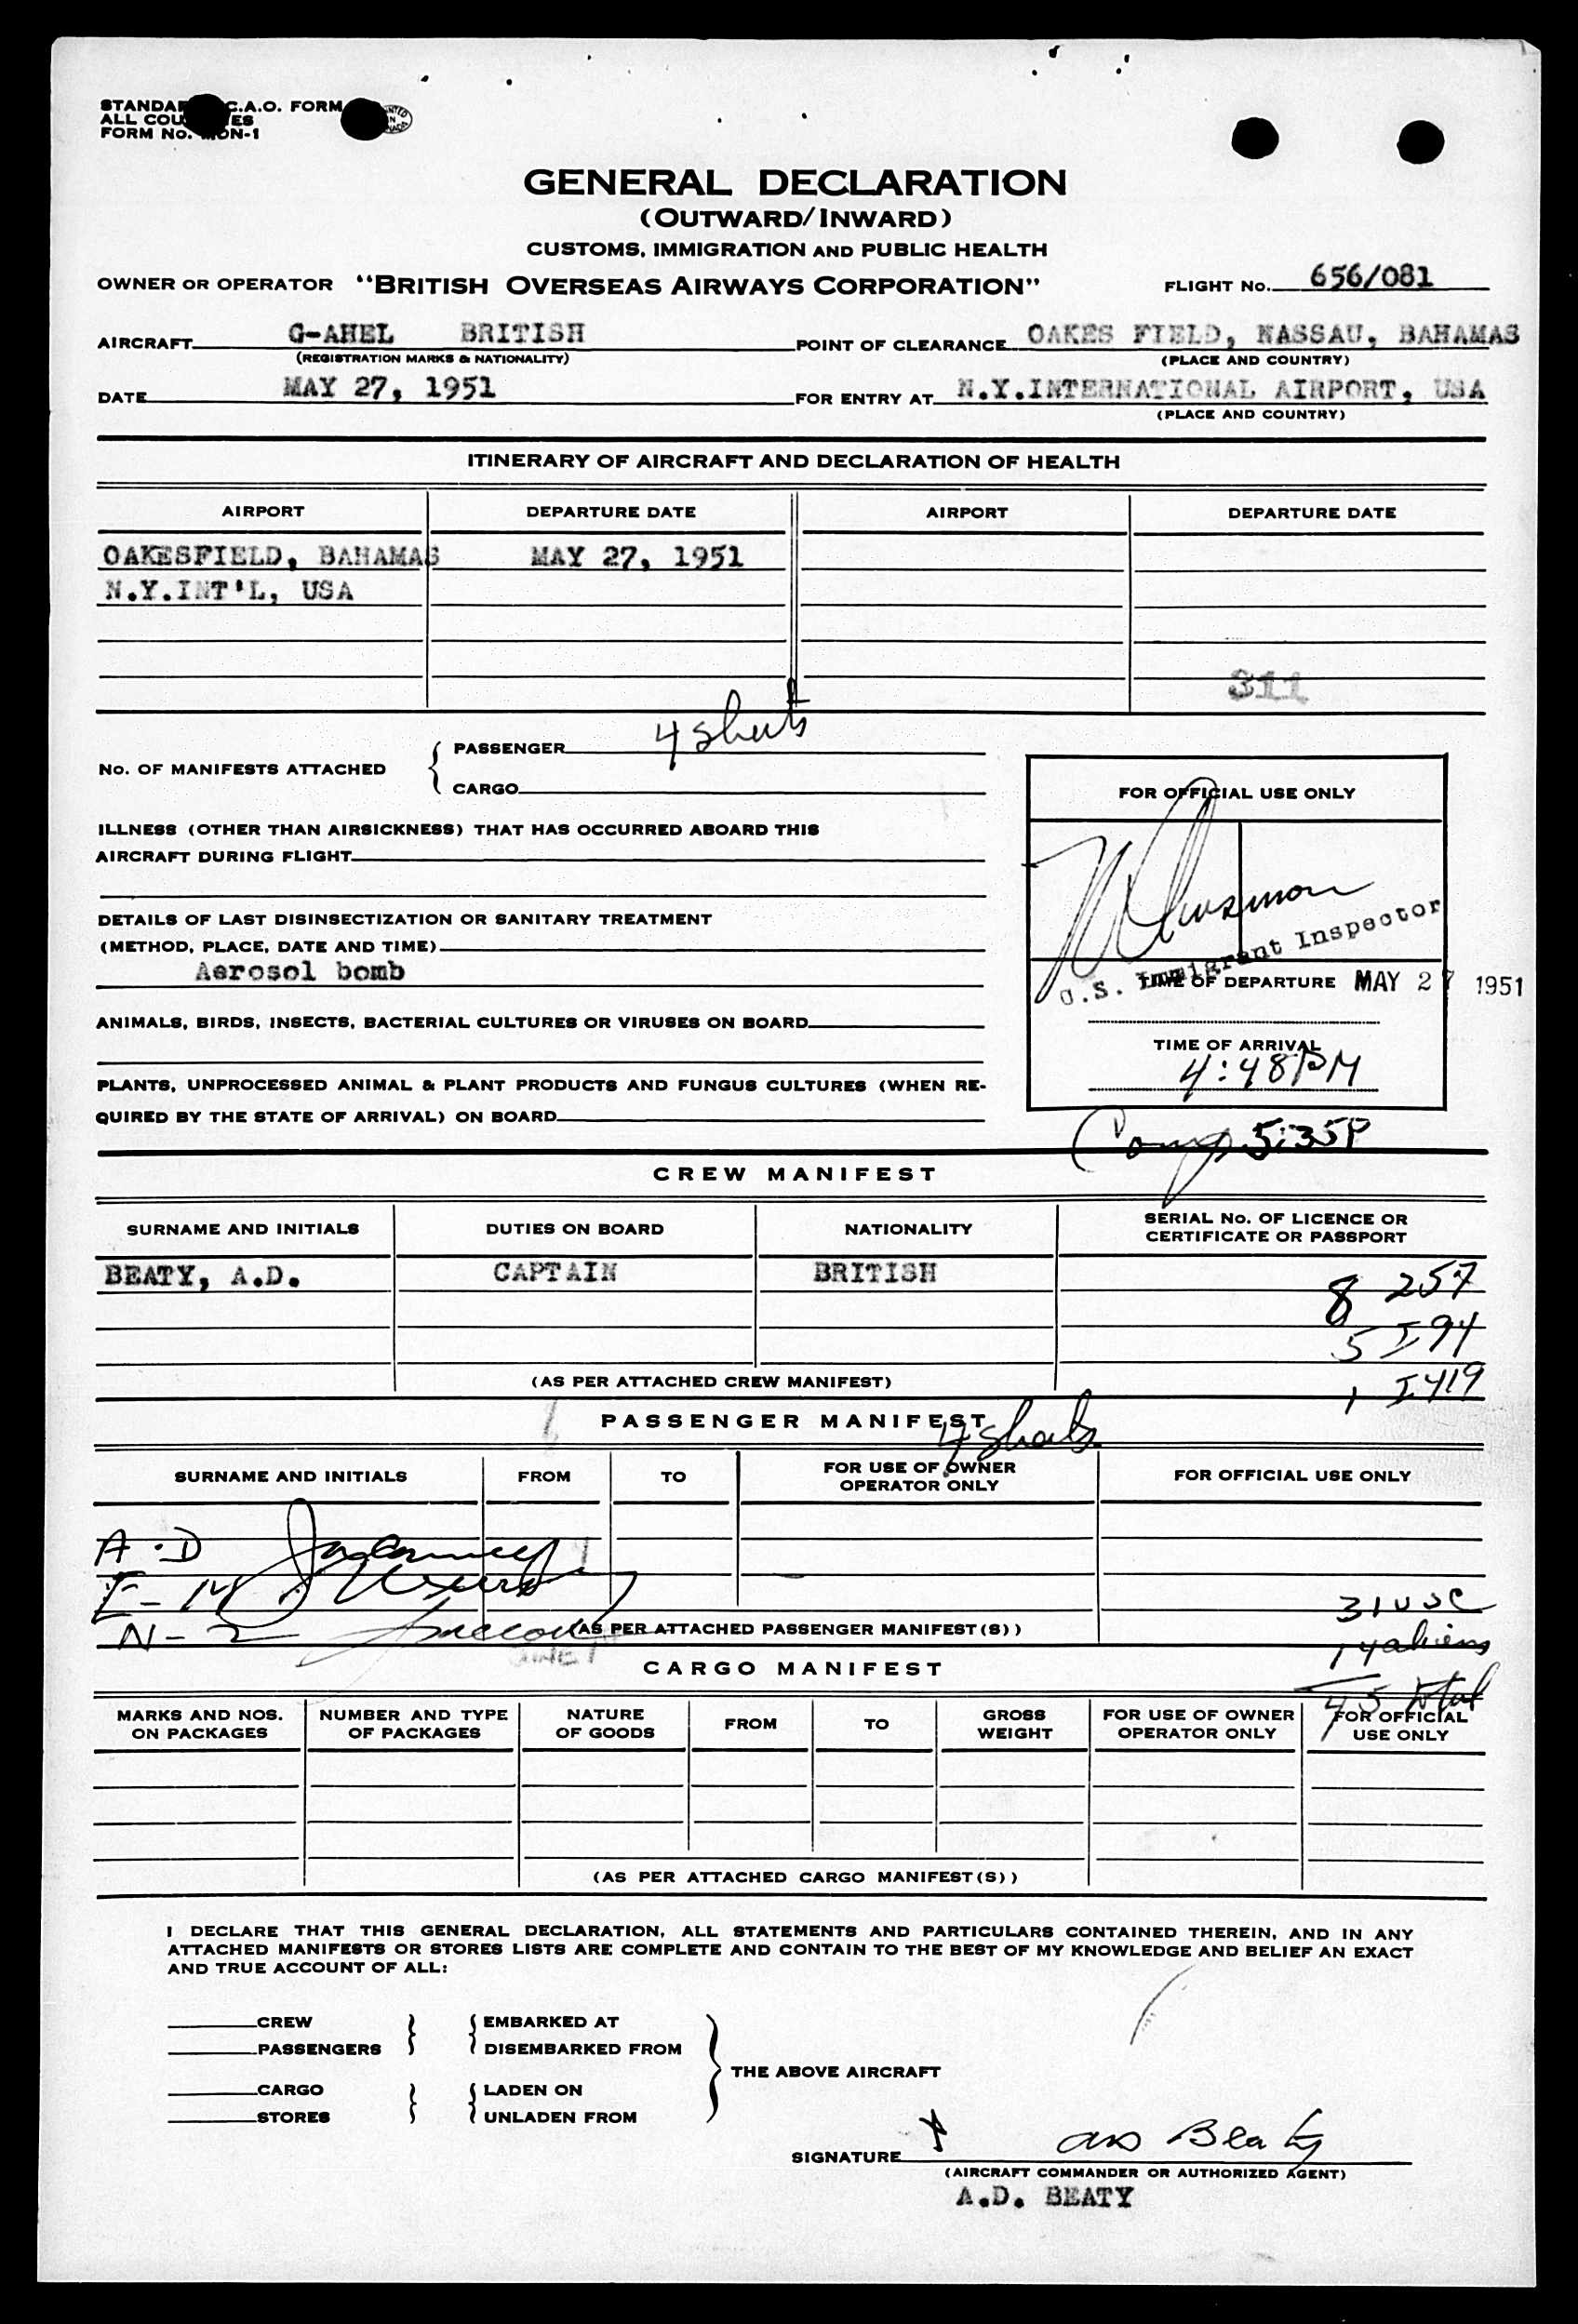 STANDAR C.A.O. FORM
ALL COU ES
FORM No. ON-1
GENERAL DECLARATION
(OUTWARD/INWARD)
CUSTOMS, IMMIGRATION AND PUBLIC HEALTH
OWNER OR OPERATOR "BRITISH OVERSEAS AIRWAYS CORPORATION" FLIGHT No. 656/081
AIRCRAFT G-AHEL BRITISH POINT OF CLEARANCE OAKES FIELD, NASSAU, BAHAMAS
(REGISTRATION MARKS & NATIONALITY) (PLACE AND COUNTRY)
DATE MAY 27, 1951 FOR ENTRY AT N.Y.INTERNATIONAL AIRPORT, USA
(PLACE AND COUNTRY)
ITINERARY OF AIRCRAFT AND DECLARATION OF HEALTH
AIRPORT DEPARTURE DATE AIRPORT DEPARTURE DATE
OAKESFIELD, BAHAMAS MAY 27, 1951
N.Y.INT'L, USA
311
No. OF MANIFESTS ATTACHED { PASSENGER 4 sheets
CARGO
FOR OFFICIAL USE ONLY
ILLNESS (OTHER THAN AIRSICKNESS) THAT HAS OCCURRED ABOARD THIS
AIRCRAFT DURING FLIGHT
DETAILS OF LAST DISINSECTIZATION OR SANITARY TREATMENT
(METHOD, PLACE, DATE AND TIME)
Aerosol bomb
U.S. Immigrant Inspector
TIME OF DEPARTURE MAY 27 1951
ANIMALS, BIRDS, INSECTS, BACTERIAL CULTURES OR VIRUSES ON BOARD
TIME OF ARRIVAL
4:48PM
PLANTS, UNPROCESSED ANIMAL & PLANT PRODUCTS AND FUNGUS CULTURES (WHEN RE-
QUIRED BY THE STATE OF ARRIVAL) ON BOARD
Comp 5:35P
CREW MANIFEST
SURNAME AND INITIALS DUTIES ON BOARD NATIONALITY SERIAL No. OF LICENCE OR
CERTIFICATE OR PASSPORT
BEATY, A.D. CAPTAIN BRITISH
8 257
5 I 94
1 I 419
(AS PER ATTACHED CREW MANIFEST)
PASSENGER MANIFEST 4 sheets
SURNAME AND INITIALS FROM TO FOR USE OF OWNER
OPERATOR ONLY FOR OFFICIAL USE ONLY
A-D
E-M
N-Z
31 USC
(AS PER ATTACHED PASSENGER MANIFEST(S))
14 aliens
JUNE 1
45 total
CARGO MANIFEST
MARKS AND NOS.
ON PACKAGES NUMBER AND TYPE
OF PACKAGES NATURE
OF GOODS FROM TO GROSS
WEIGHT FOR USE OF OWNER
OPERATOR ONLY FOR OFFICIAL
USE ONLY
(AS PER ATTACHED CARGO MANIFEST(S))
I DECLARE THAT THIS GENERAL DECLARATION, ALL STATEMENTS AND PARTICULARS CONTAINED THEREIN, AND IN ANY
ATTACHED MANIFESTS OR STORES LISTS ARE COMPLETE AND CONTAIN TO THE BEST OF MY KNOWLEDGE AND BELIEF AN EXACT
AND TRUE ACCOUNT OF ALL:
CREW } { EMBARKED AT
PASSENGERS DISEMBARKED FROM
} THE ABOVE AIRCRAFT
CARGO } { LADEN ON
STORES UNLADEN FROM
SIGNATURE X AD Beaty
(AIRCRAFT COMMANDER OR AUTHORIZED AGENT)
A.D. BEATY